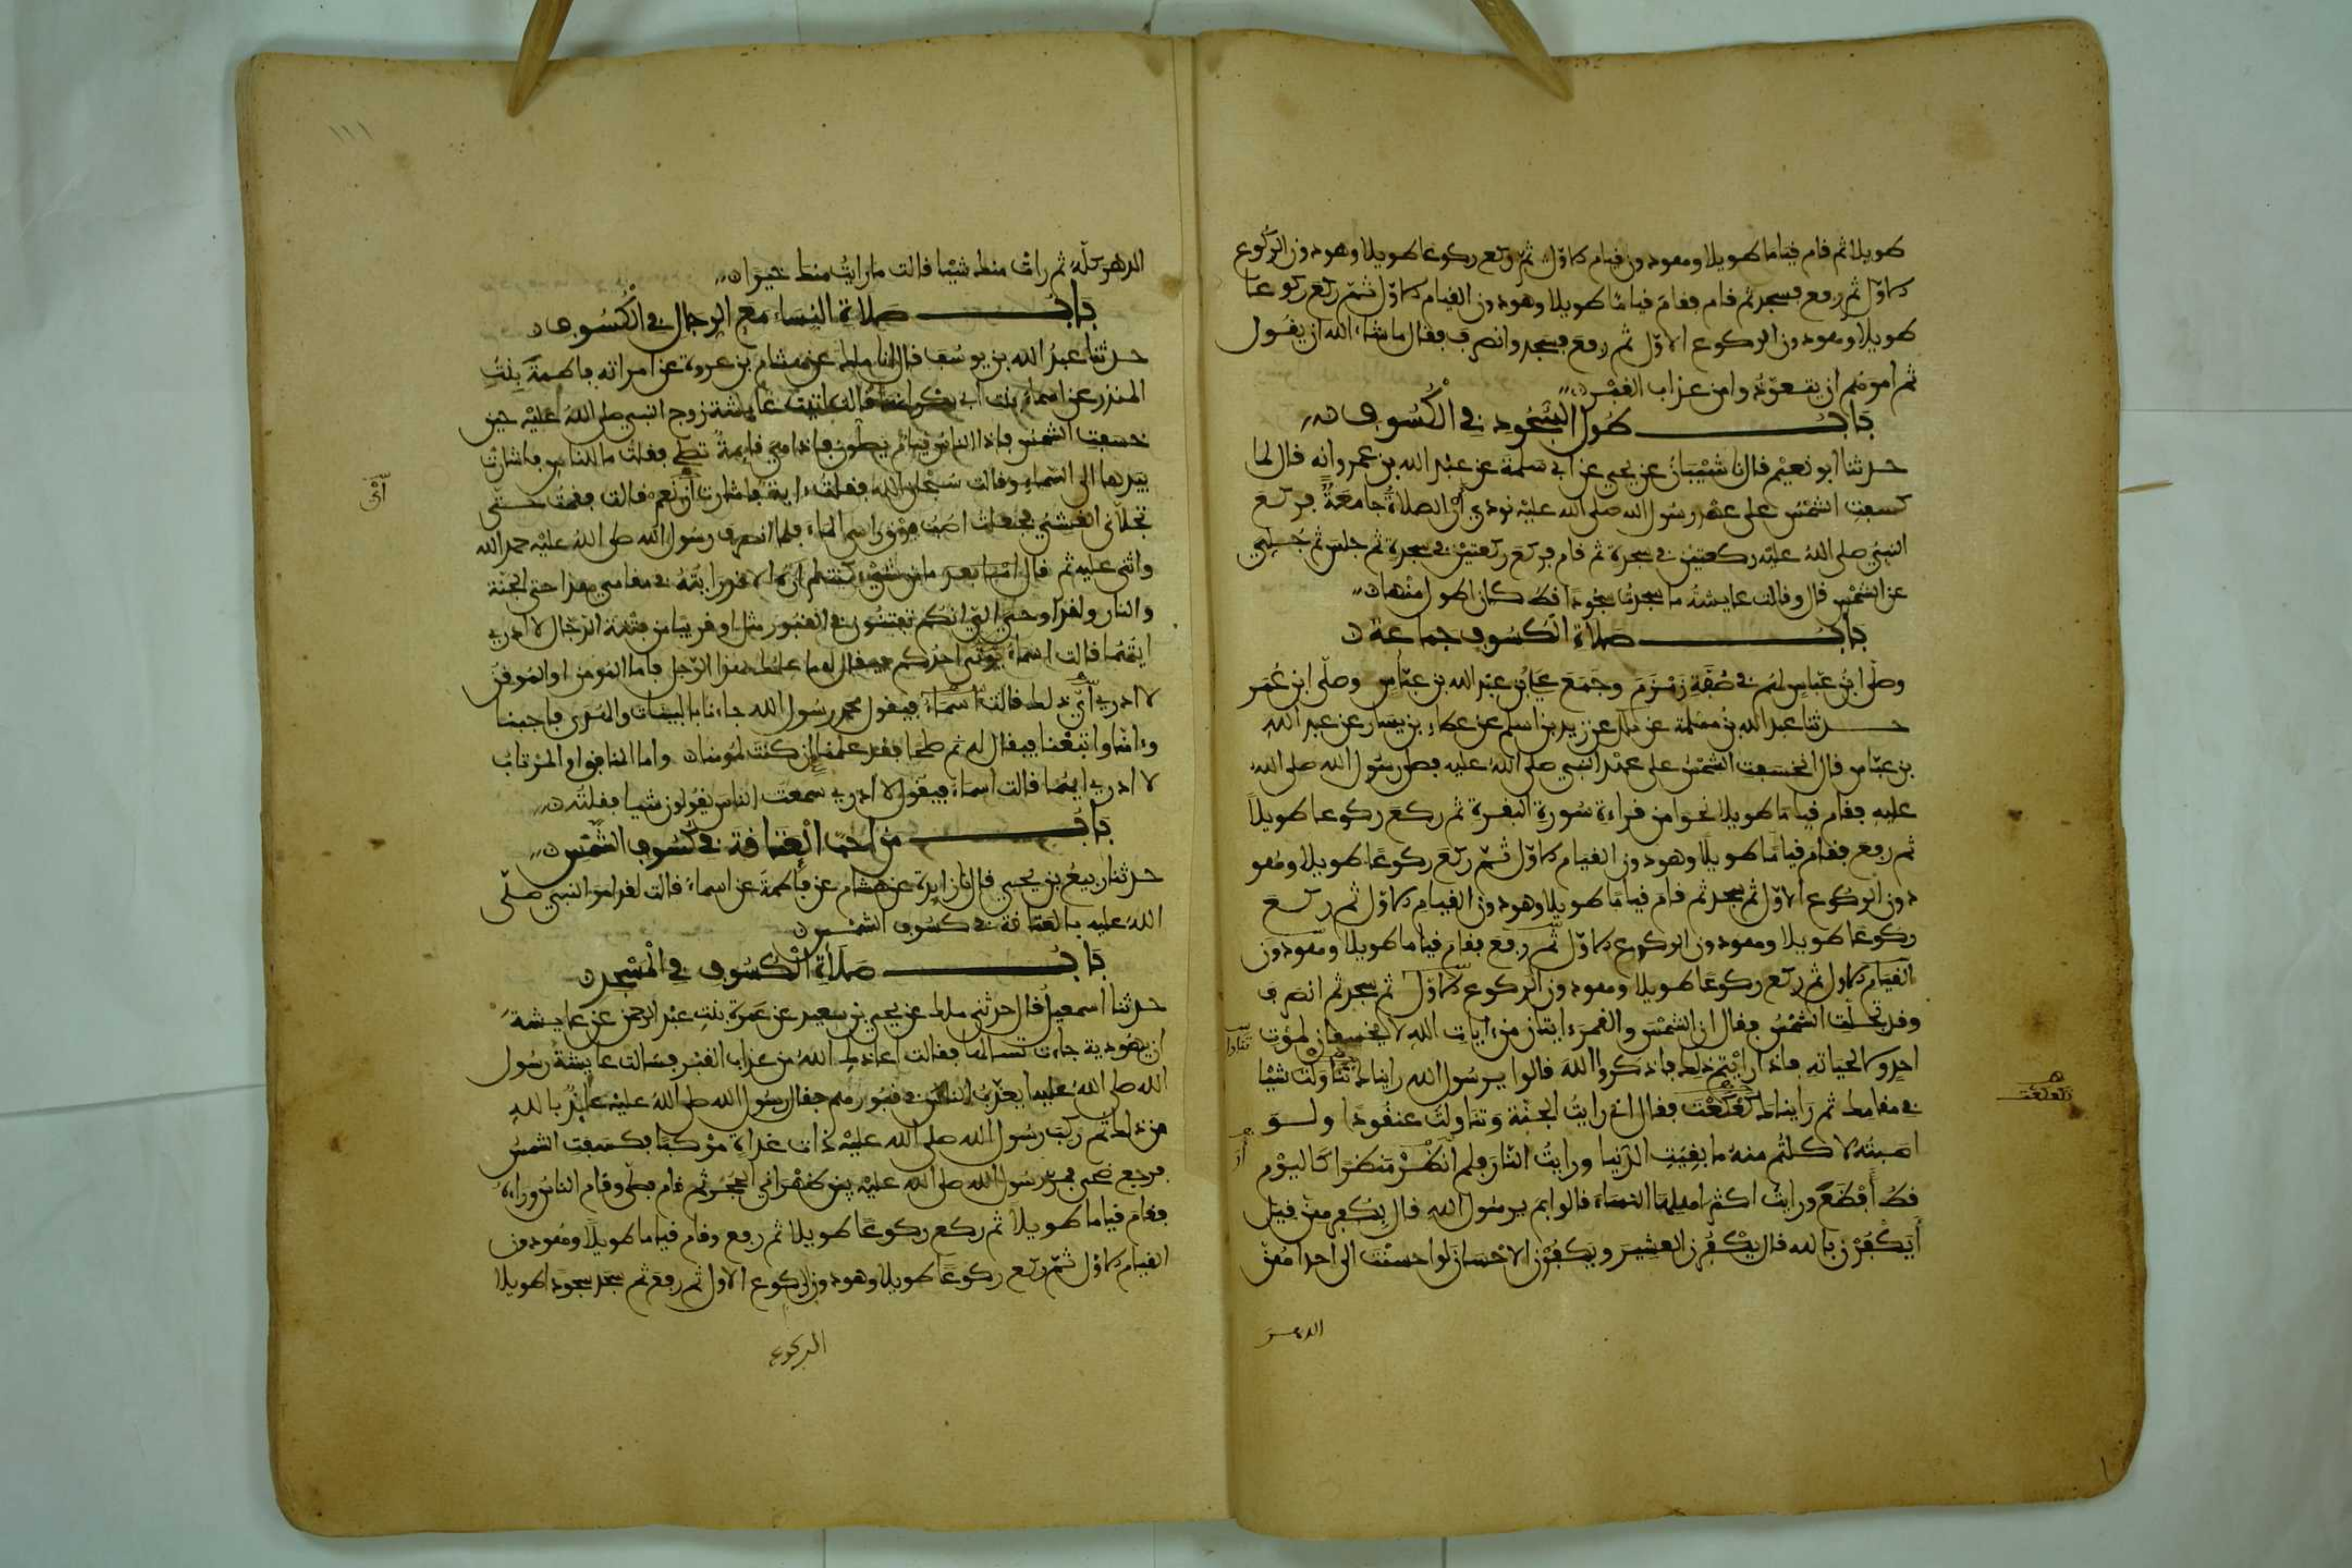 طويلا ثم قام قياما طويلا وهو دون قيام الاول ثم ركع ركوعا طويلا وهو دون الركوع
الاول ثم رفع فسجد ثم قام فقام قياما طويلا وهو دون القيام الاول ثم ركع ركوعا
طويلا وهو دون الركوع الاول ثم رفع فسجد وانصرف فقال ما شاء الله ان يقول
ثم امرهم ان يتعوذوا من عذاب القبر
باب طول السجود في الكسوف
حدثنا ابو نعيم قال نا شيبان عن يحيى عن ابي سلمة عن عبد الله بن عمرو انه قال لما
كسفت الشمس على عهد رسول الله صلى الله عليه نودي ان الصلاة جامعة فركع
النبي صلى الله عليه ركعتين في سجدة ثم قام فركع ركعتين في سجدة ثم جلس ثم جلي
عن الشمس قال وقالت عايشة ما سجدت سجودا قط كان اطول منها
باب صلاة الكسوف جماعة
وصلى ابن عباس لهم في صفة زمزم وجمع علي بن عبد الله بن عباس وصلى ابن عمر
حدثنا عبد الله بن مسلمة عن ملك عن زيد بن اسلم عن عطاء بن يسار عن عبد الله
بن عباس قال انخسفت الشمس على عهد النبي صلى الله عليه فصلى رسول الله صلى الله
عليه فقام قياما طويلا نحوا من قراءة سورة البقرة ثم ركع ركوعا طويلا
ثم رفع فقام قياما طويلا وهو دون القيام الاول ثم ركع ركوعا طويلا وهو
دون الركوع الاول ثم سجد ثم قام قياما طويلا وهو دون القيام الاول ثم ركع
ركوعا طويلا وهو دون الركوع الاول ثم رفع فقام قياما طويلا وهو دون
القيام الاول ثم ركع ركوعا طويلا وهو دون الركوع الاول ثم سجد ثم انصرف
وقد تجلت الشمس فقال ان الشمس والقمر ءايتان من ءايات الله لا يخسفان لموت
احد ولا لحياته فاذا رايتم ذلك فاذكروا الله قالوا يرسول الله رايناك تناولت شيئا
في مقامك ثم رايناك كعكعت فقال اني رايت الجنة وتناولت عنقودا ولو
اصبته لاكلتم منه ما بقيت الدنيا ورايت النار فلم انظر منظرا كاليوم
قط افظع ورايت اكثر اهلها النساء قالوا بم يرسول الله قال بكفرهن قيل
ايكفرن بالله قال يكفرن العشير ويكفرن الاحسان لو احسنت الى احداهن
الدهر
تكعكعت
الدهر كله ثم رات منك شيئا قالت ما رايت منك خيرا
باب صلاة النساء مع الرجال في الكسوف
حدثنا عبد الله بن يوسف قال انا ملك عن هشام بن عروة عن امراته فاطمة بنت
المنذر عن اسماء بنت ابي بكر انها قالت اتيت عايشة زوج النبي صلى الله عليه حين
خسفت الشمس فاذا الناس قيام يصلون فاذا هي قايمة تصلي فقلت ما للناس فاشارت
بيدها الى السماء وقالت سبحان الله فقلت ءاية فاشارت ان نعم قالت فقمت حتى
تجلاني الغشي فجعلت اصب فوق راسي الماء فلما انصرف رسول الله صلى الله عليه حمد الله
واثنى عليه ثم قال اما بعد ما من شيء كنت لم اره الا قد رايته في مقامي هذا حتى الجنة
والنار ولقد اوحي الي انكم تفتنون في القبور مثل او قريبا من فتنة الدجال لا ادري
ايتهما قالت اسماء يوتى احدكم فيقال له ما علمك بهذا الرجل فاما المومن او الموقن
لا ادري اي ذلك قالت اسماء فيقول محمد رسول الله جاءنا بالبينات والهدى فاجبنا
وءامنا واتبعنا فيقال له نم صالحا فقد علمنا ان كنت لموقنا واما المنافق او المرتاب
لا ادري ايهما قالت اسماء فيقول لا ادري سمعت الناس يقولون شيئا فقلته
باب من احب العتاقة في كسوف الشمس
حدثنا ربيع بن يحيى قال نا زايدة عن هشام عن فاطمة عن اسماء قالت لقد امر النبي صلى
الله عليه بالعتاقة في كسوف الشمس
باب صلاة الكسوف في المسجد
حدثنا اسمعيل قال حدثني ملك عن يحيى بن سعيد عن عمرة بنت عبد الرحمن عن عايشة
ان يهودية جاءت تسالها فقالت اعاذك الله من عذاب القبر فسالت عايشة رسول
الله صلى الله عليه ايعذب الناس في قبورهم فقال رسول الله صلى الله عليه عايذا بالله
من ذلك ثم ركب رسول الله صلى الله عليه ذات غداة مركبا فكسفت الشمس
فرجع ضحى فمر رسول الله صلى الله عليه بين ظهراني الحجر ثم قام فصلى وقام الناس وراءه
فقام قياما طويلا ثم ركع ركوعا طويلا ثم رفع وقام قياما طويلا وهو دون
القيام الاول ثم ركع ركوعا طويلا وهو دون الركوع الاول ثم رفع ثم سجد سجودا طويلا
الركوع